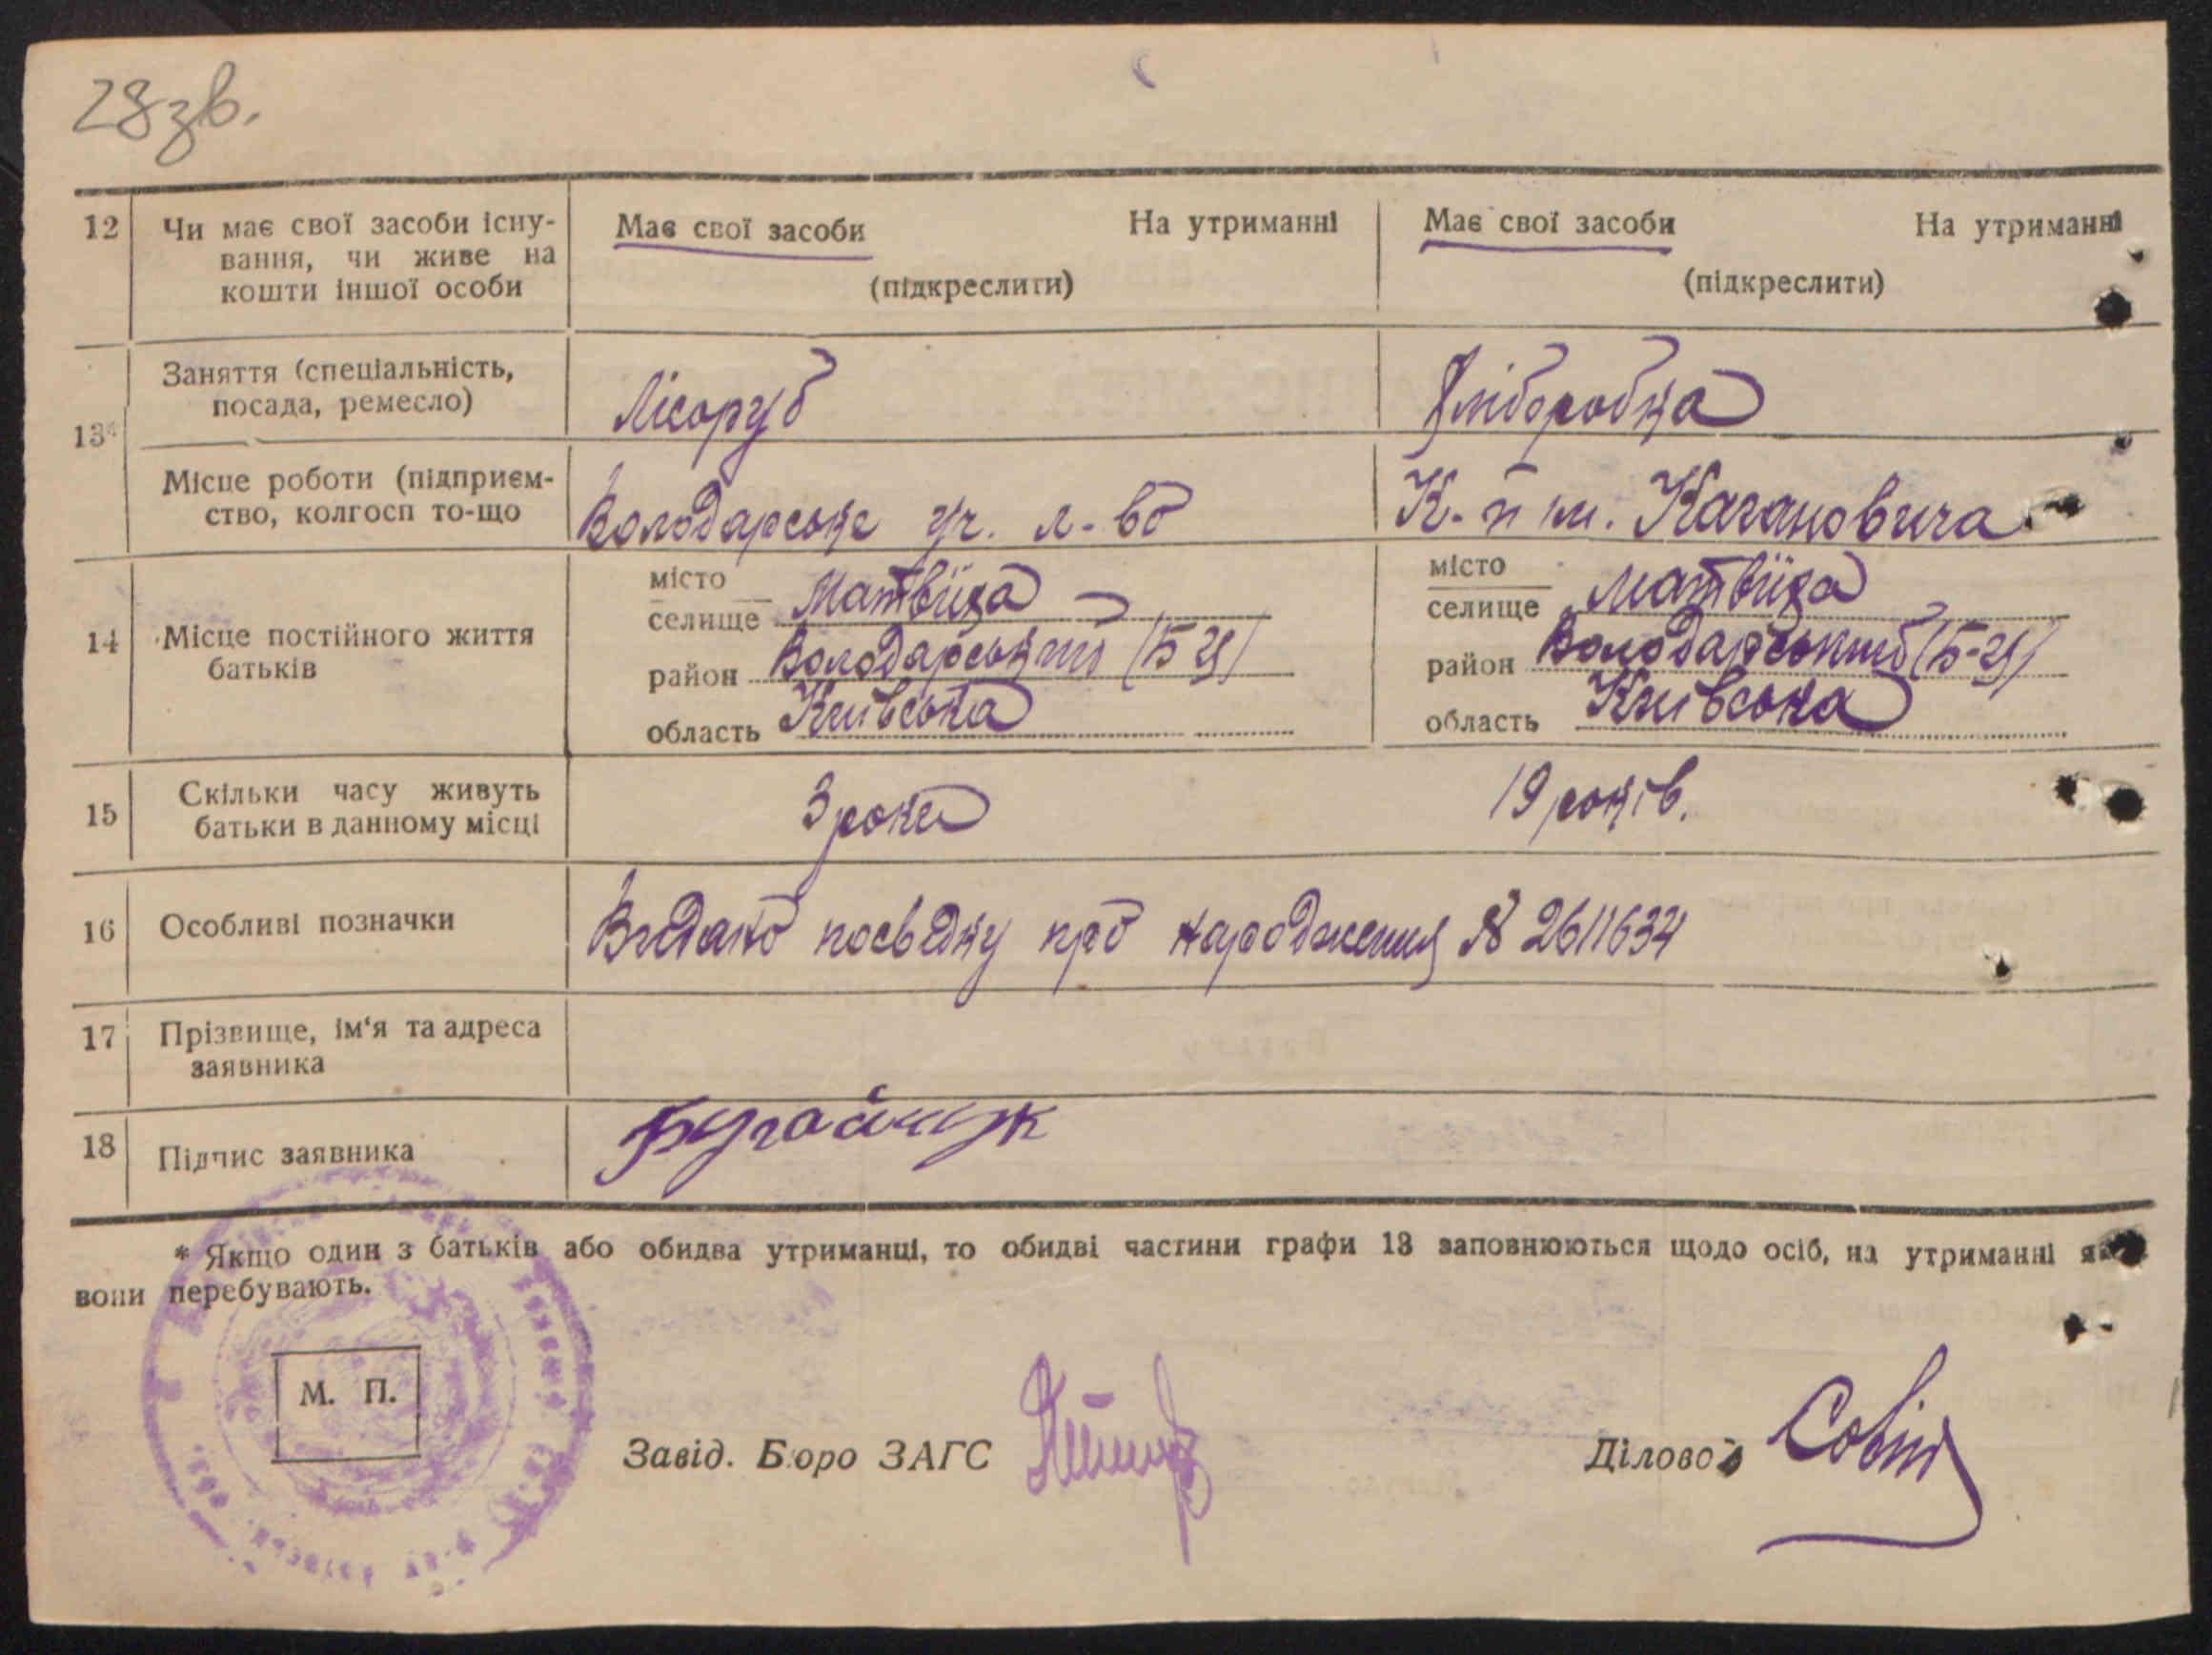 28зв.
12 Чи має свої засоби існу- Має свої засоби На утриманні Має свої засоби На утриманні
вання, чи живе на
кошти іншої особи (підкреслити) (підкреслити)
Заняття (спеціальність,
посада, ремесло) Лісоруб Хліборобка
13*
Місце роботи (підприєм-
ство, колгосп то-що Володарське уч. л-во К-п ім. Кагановича
14 Місце постійного життя
батьків
місто
селище Матвіїха
район Володарський (Б-Ц)
область Київська
місто
селище Матвіїха
район Володарський (Б-Ц)
область Київська
15 Скільки часу живуть
батьки в данному місці 3 роки 19 років.
16 Особливі позначки Видано посвідку про народження № 2611634
17 Прізвище, ім'я та адреса
заявника
18 Підпис заявника Бугайчук
* Якщо один з батьків або обидва утриманці, то обидві частини графи 13 заповнюються щодо осіб, на утриманні
вони перебувають.
М. П.
Завід. Бюро ЗАГС Діловод